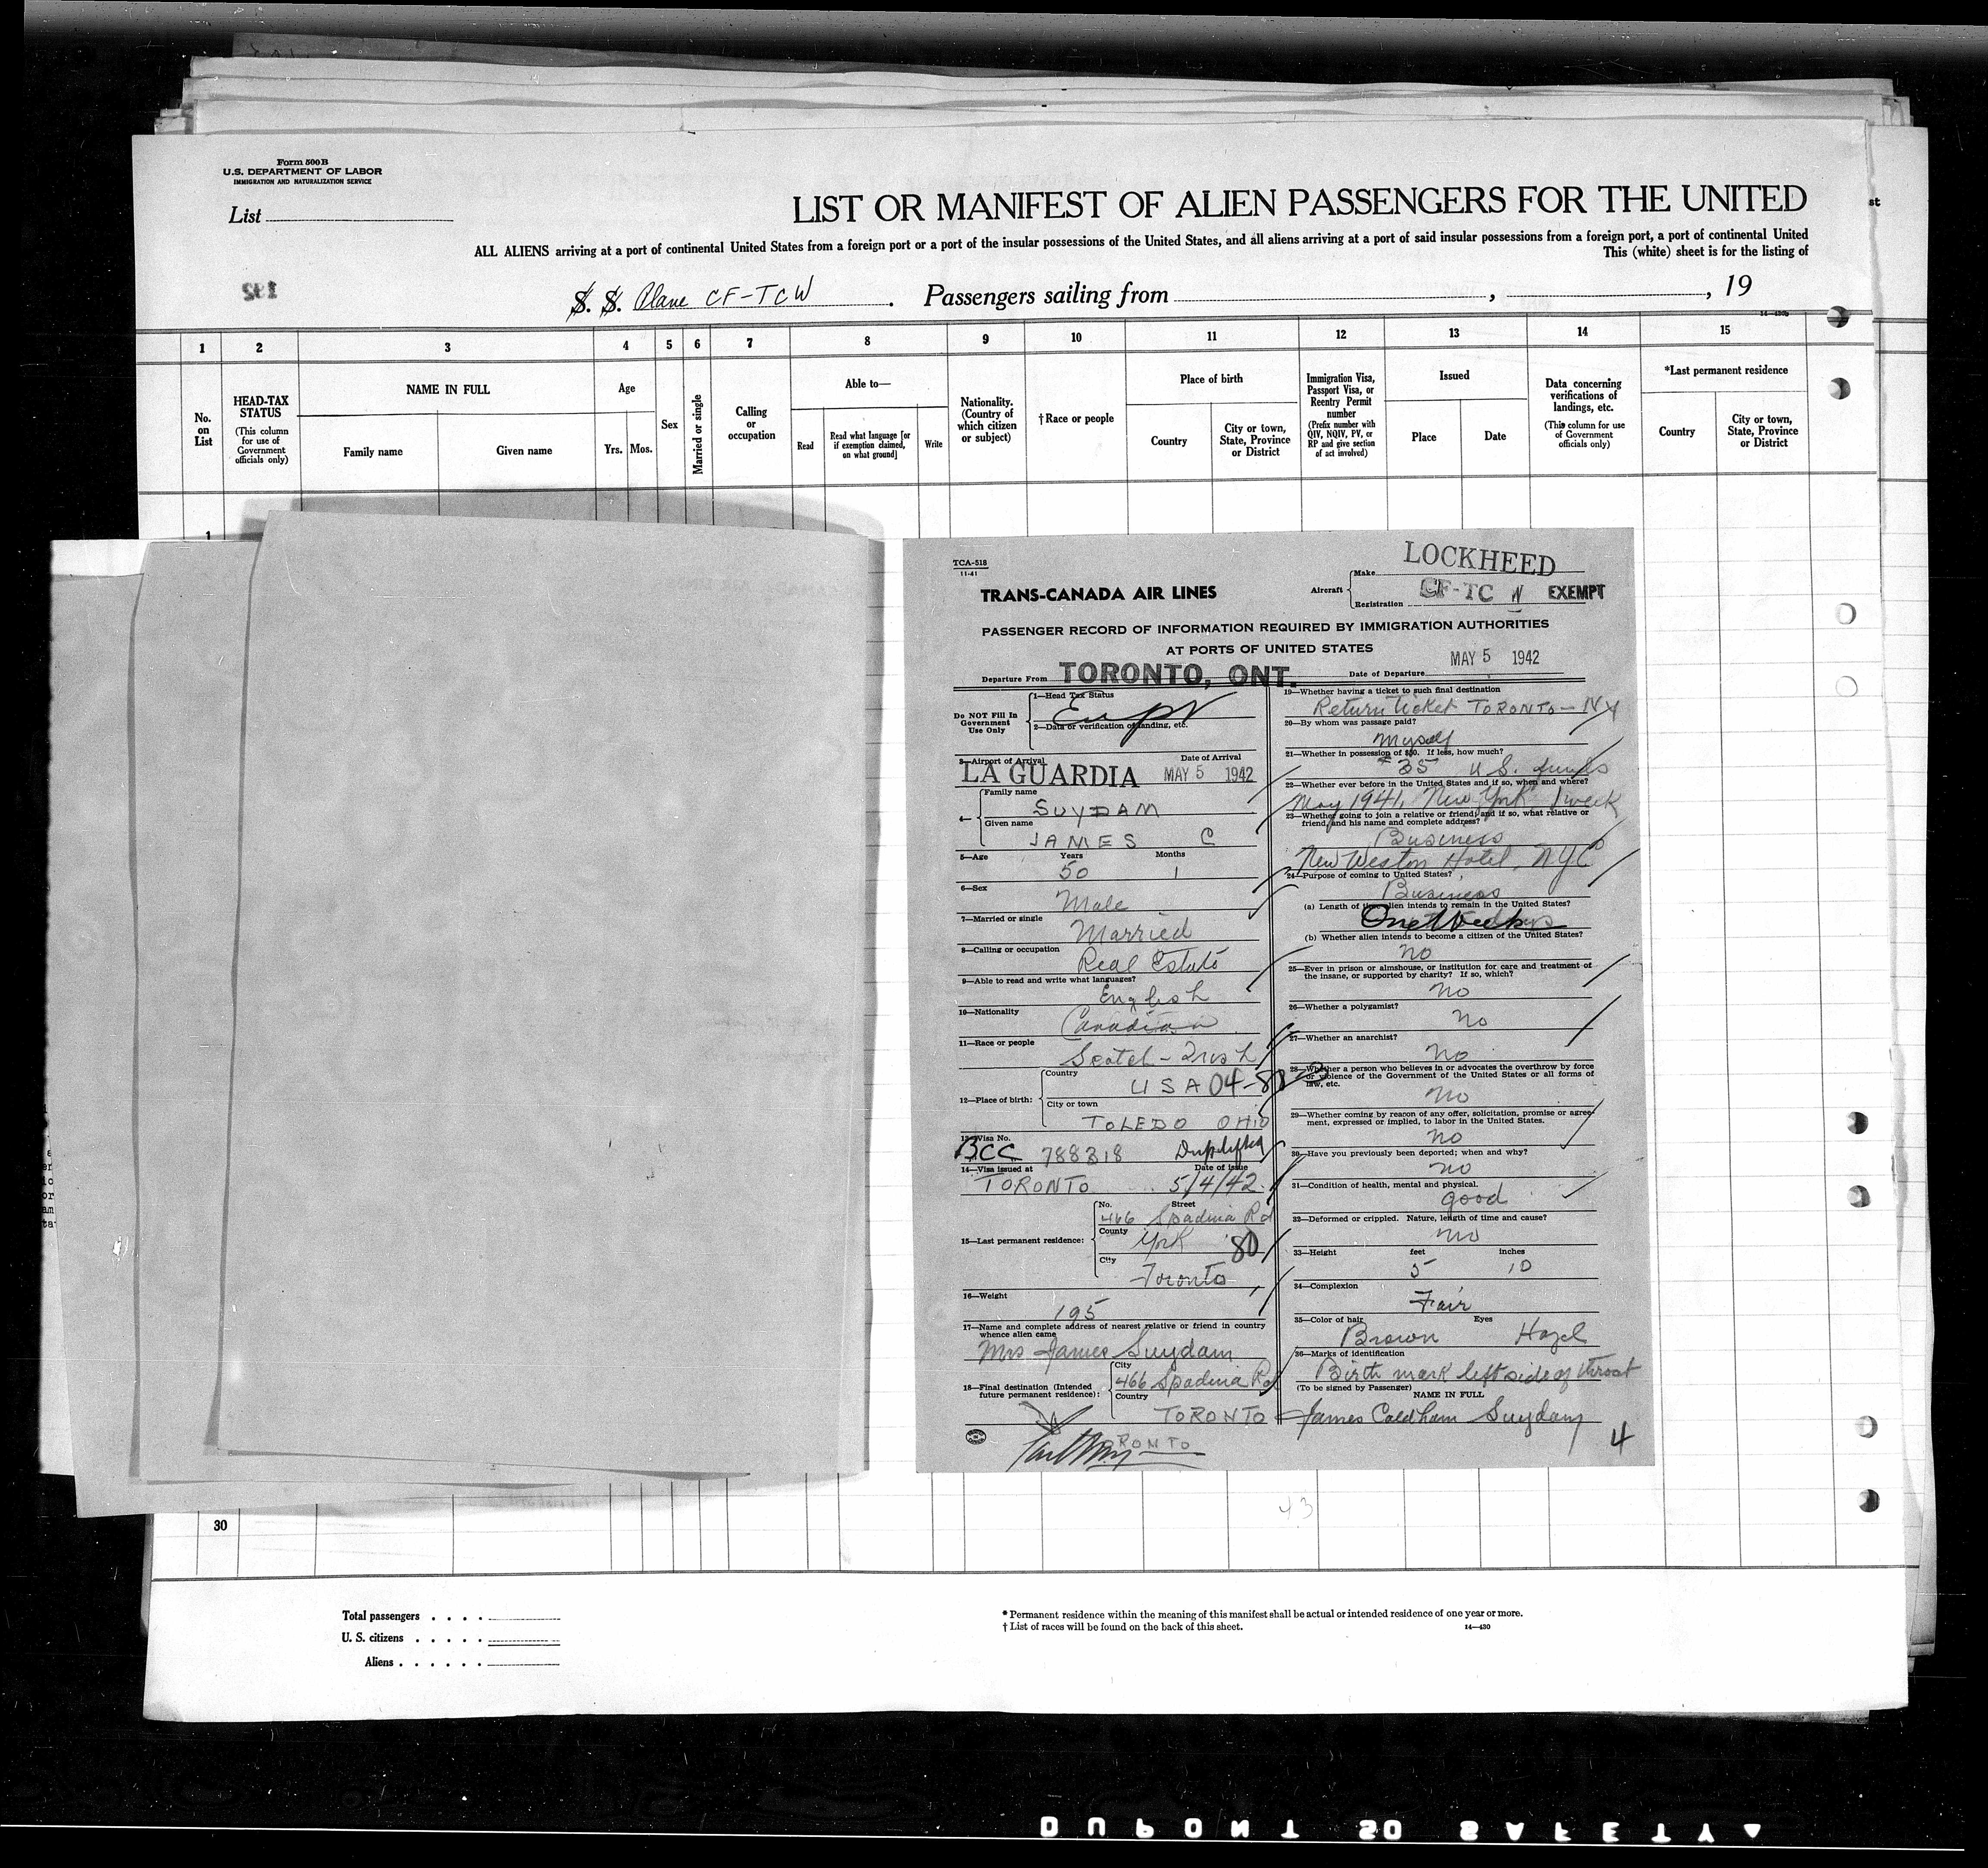 Form 500B
U.S. DEPARTMENT OF LABOR
IMMIGRATION AND NATURALIZATION SERVICE
List
LIST OR MANIFEST OF ALIEN PASSENGERS FOR THE UNITED
ALL ALIENS arriving at a port of continental United States from a foreign port or a port of the insular possessions of the United States, and all aliens arriving at a port of said insular possessions from a foreign port, a port of continental United
This (white) sheet is for the listing of
S. S. Plane CF-TCW . Passengers sailing from , , 19
1 2 3 4 5 6 7 8 9 10 11 12 13 14 15
No. on List
HEAD-TAX STATUS
(This column for use of Government officials only)
NAME IN FULL
Family name
Given name
Age
Yrs. Mos.
Sex
Married or single
Calling or occupation
Able to—
Read
Read what language [or if exemption claimed, on what ground]
Write
Nationality. (Country of which citizen or subject)
† Race or people
Place of birth
Country
City or town, State, Province or District
Immigration Visa, Passport Visa, or Reentry Permit number
(Prefix number with QIV, NQIV, PV, or RP and give section of act involved)
Issued
Place
Date
Data concerning verifications of landings, etc.
(This column for use of Government officials only)
*Last permanent residence
Country
City or town, State, Province or District
1
TCA-518
11-41
TRANS-CANADA AIR LINES
Aircraft
Make LOCKHEED
Registration CF-TC W EXEMPT
PASSENGER RECORD OF INFORMATION REQUIRED BY IMMIGRATION AUTHORITIES
AT PORTS OF UNITED STATES
Departure From TORONTO, ONT.
Date of Departure MAY 5 1942
Do NOT Fill In Government Use Only
1—Head Tax Status
2—Data or verification of landing, etc.
3—Airport of Arrival
LA GUARDIA
Date of Arrival
MAY 5 1942
4—
Family name
SUYDAM
Given name
JAMES C
5—Age
Years
50
Months
1
6—Sex
Male
7—Married or single
Married
8—Calling or occupation
Real Estate
9—Able to read and write what languages?
English
10—Nationality
Canadian
11—Race or people
Scotch-Irish
12—Place of birth:
Country
USA 04-
City or town
TOLEDO OHIO
13—Visa No.
BCC 788318
14—Visa issued at
TORONTO
Date of issue
5/4/42
15—Last permanent residence:
No. Street
466 Spadina Rd
County
York 80
City
Toronto
16—Weight
195
17—Name and complete address of nearest relative or friend in country whence alien came
Mrs James Suydam
18—Final destination (Intended future permanent residence):
City
466 Spadina Rd
Country
TORONTO
TORONTO
19—Whether having a ticket to such final destination
Return Ticket TORONTO - NY
20—By whom was passage paid?
Myself
21—Whether in possession of $50. If less, how much?
$35 U.S. funds
22—Whether ever before in the United States and if so, when and where?
May 1941, New York 1 week
23—Whether going to join a relative or friend, and if so, what relative or friend, and his name and complete address?
Business
New Weston Hotel, N.Y.C
24—Purpose of coming to United States?
Business
(a) Length of time alien intends to remain in the United States?
One Week
(b) Whether alien intends to become a citizen of the United States?
No
25—Ever in prison or almshouse, or institution for care and treatment of the insane, or supported by charity? If so, which?
No
26—Whether a polygamist?
No
27—Whether an anarchist?
No
28—Whether a person who believes in or advocates the overthrow by force or violence of the Government of the United States or all forms of law, etc.
No
29—Whether coming by reason of any offer, solicitation, promise or agreement, expressed or implied, to labor in the United States.
No
30—Have you previously been deported; when and why?
No
31—Condition of health, mental and physical.
good
32—Deformed or crippled. Nature, length of time and cause?
No
33—Height feet inches
5 10
34—Complexion
Fair
35—Color of hair Eyes
Brown Hazel
36—Marks of identification
Birth mark left side of throat
(To be signed by Passenger) NAME IN FULL
James Caldham Suydam
4
43
30
Total passengers
U. S. citizens
Aliens
* Permanent residence within the meaning of this manifest shall be actual or intended residence of one year or more.
† List of races will be found on the back of this sheet.
14—430
DUPONT SO SAFETY